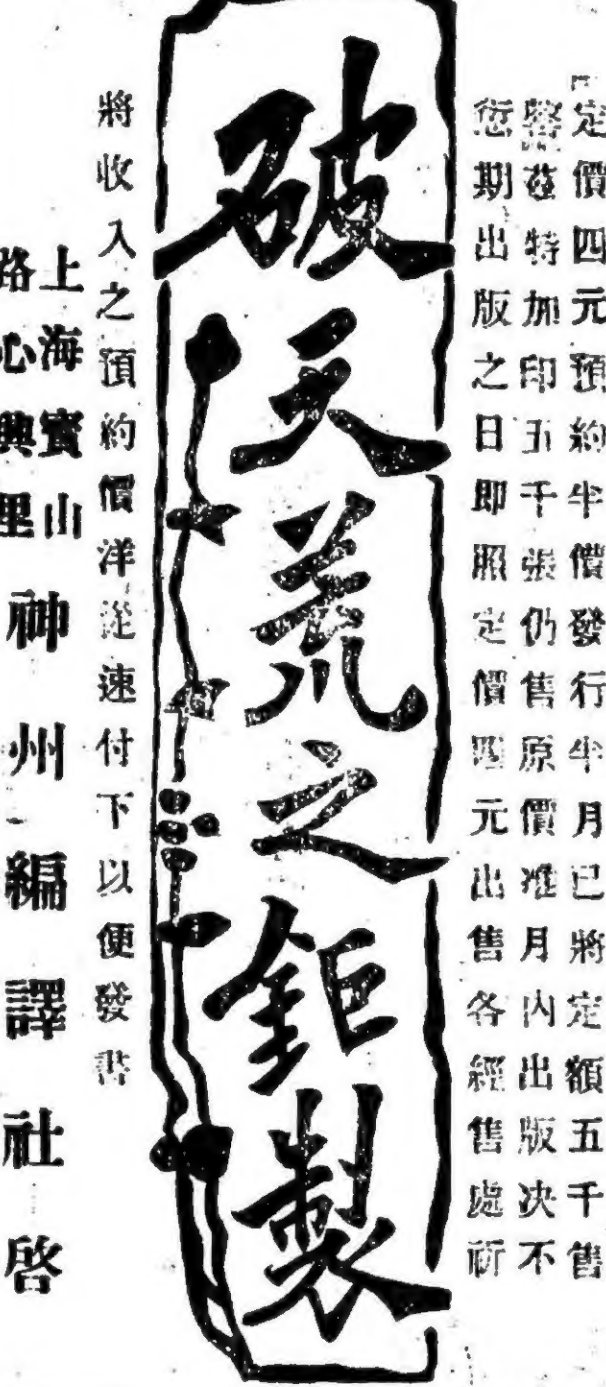 定價四元預約半價發行半月已將定額五千售
罄茲特加印五千張仍售原價准月內出版决不
愆期出版之日即照定價四元出售各經售處祈
破天荒之鉅製
將收入之預約價洋從速付下以便發書
上海寳山
路心興里
神州編譯社啓